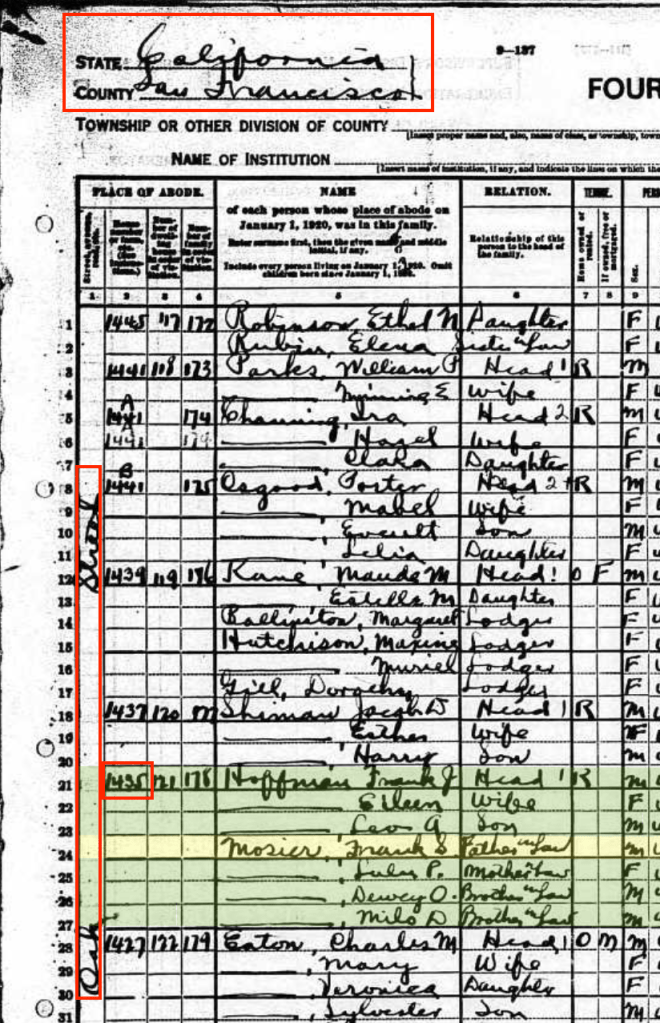 9-137
STATE California
COUNTY San Francisco
FOUR
TOWNSHIP OR OTHER DIVISION OF COUNTY
[Insert proper name and, also, name of class, as township, town
NAME OF INSTITUTION
[Insert name of institution, if any, and indicate the lines on which the
PLACE OF ABODE. NAME RELATION.
of each person whose place of abode on January 1, 1920, was in this family.
Enter surname first, then the given name and middle initial, if any.
Include every person living on January 1, 1920. Omit children born since January 1, 1920.
Relationship of this person to the head of the family.
Home owned or rented.
If owned, free or mortgaged.
Sex.
1 2 3 4 5 6 7 8 9
1 1445 117 172 Robinson, Ethel M Daughter F
2 Rubin, Elena Sister in Law F
3 1441 118 173 Parks, William P Head 1 R M
4 E Wife F
5 A 1441 174 Channing, Ira Head 2 R M
6 1441 174 Hazel Wife F
7 Clara Daughter F
8 B 1441 175 Osgood, Porter Head 2 R M
9 Mabel Wife F
10 Everett Son M
11 Lelia Daughter F
12 1439 119 176 Kane, Maude M Head 1 O F
13 Estella M Daughter F
14 Margaret Lodger F
15 Hutchison, Maxine Lodger F
16 Muriel Lodger F
17 Gill, Dorothy Lodger F
18 1437 120 177 Shiman Jacob D Head 1 R M
19 Esther Wife F
20 Harry Son M
21 1435 121 178 Hoffman Frank J Head 1 R M
22 Eileen Wife F
23 Leo A Son M
24 Mosier, Frank S Father in Law M
25 Lulu P. Mother in Law F
26 Dewey O. Brother in Law M
27 Milo D Brother in Law M
28 1427 122 179 Eaton, Charles M Head 1 O M M
29 Mary Wife F
30 Veronica Daughter F
31 Sylvester Son M
Oak Street